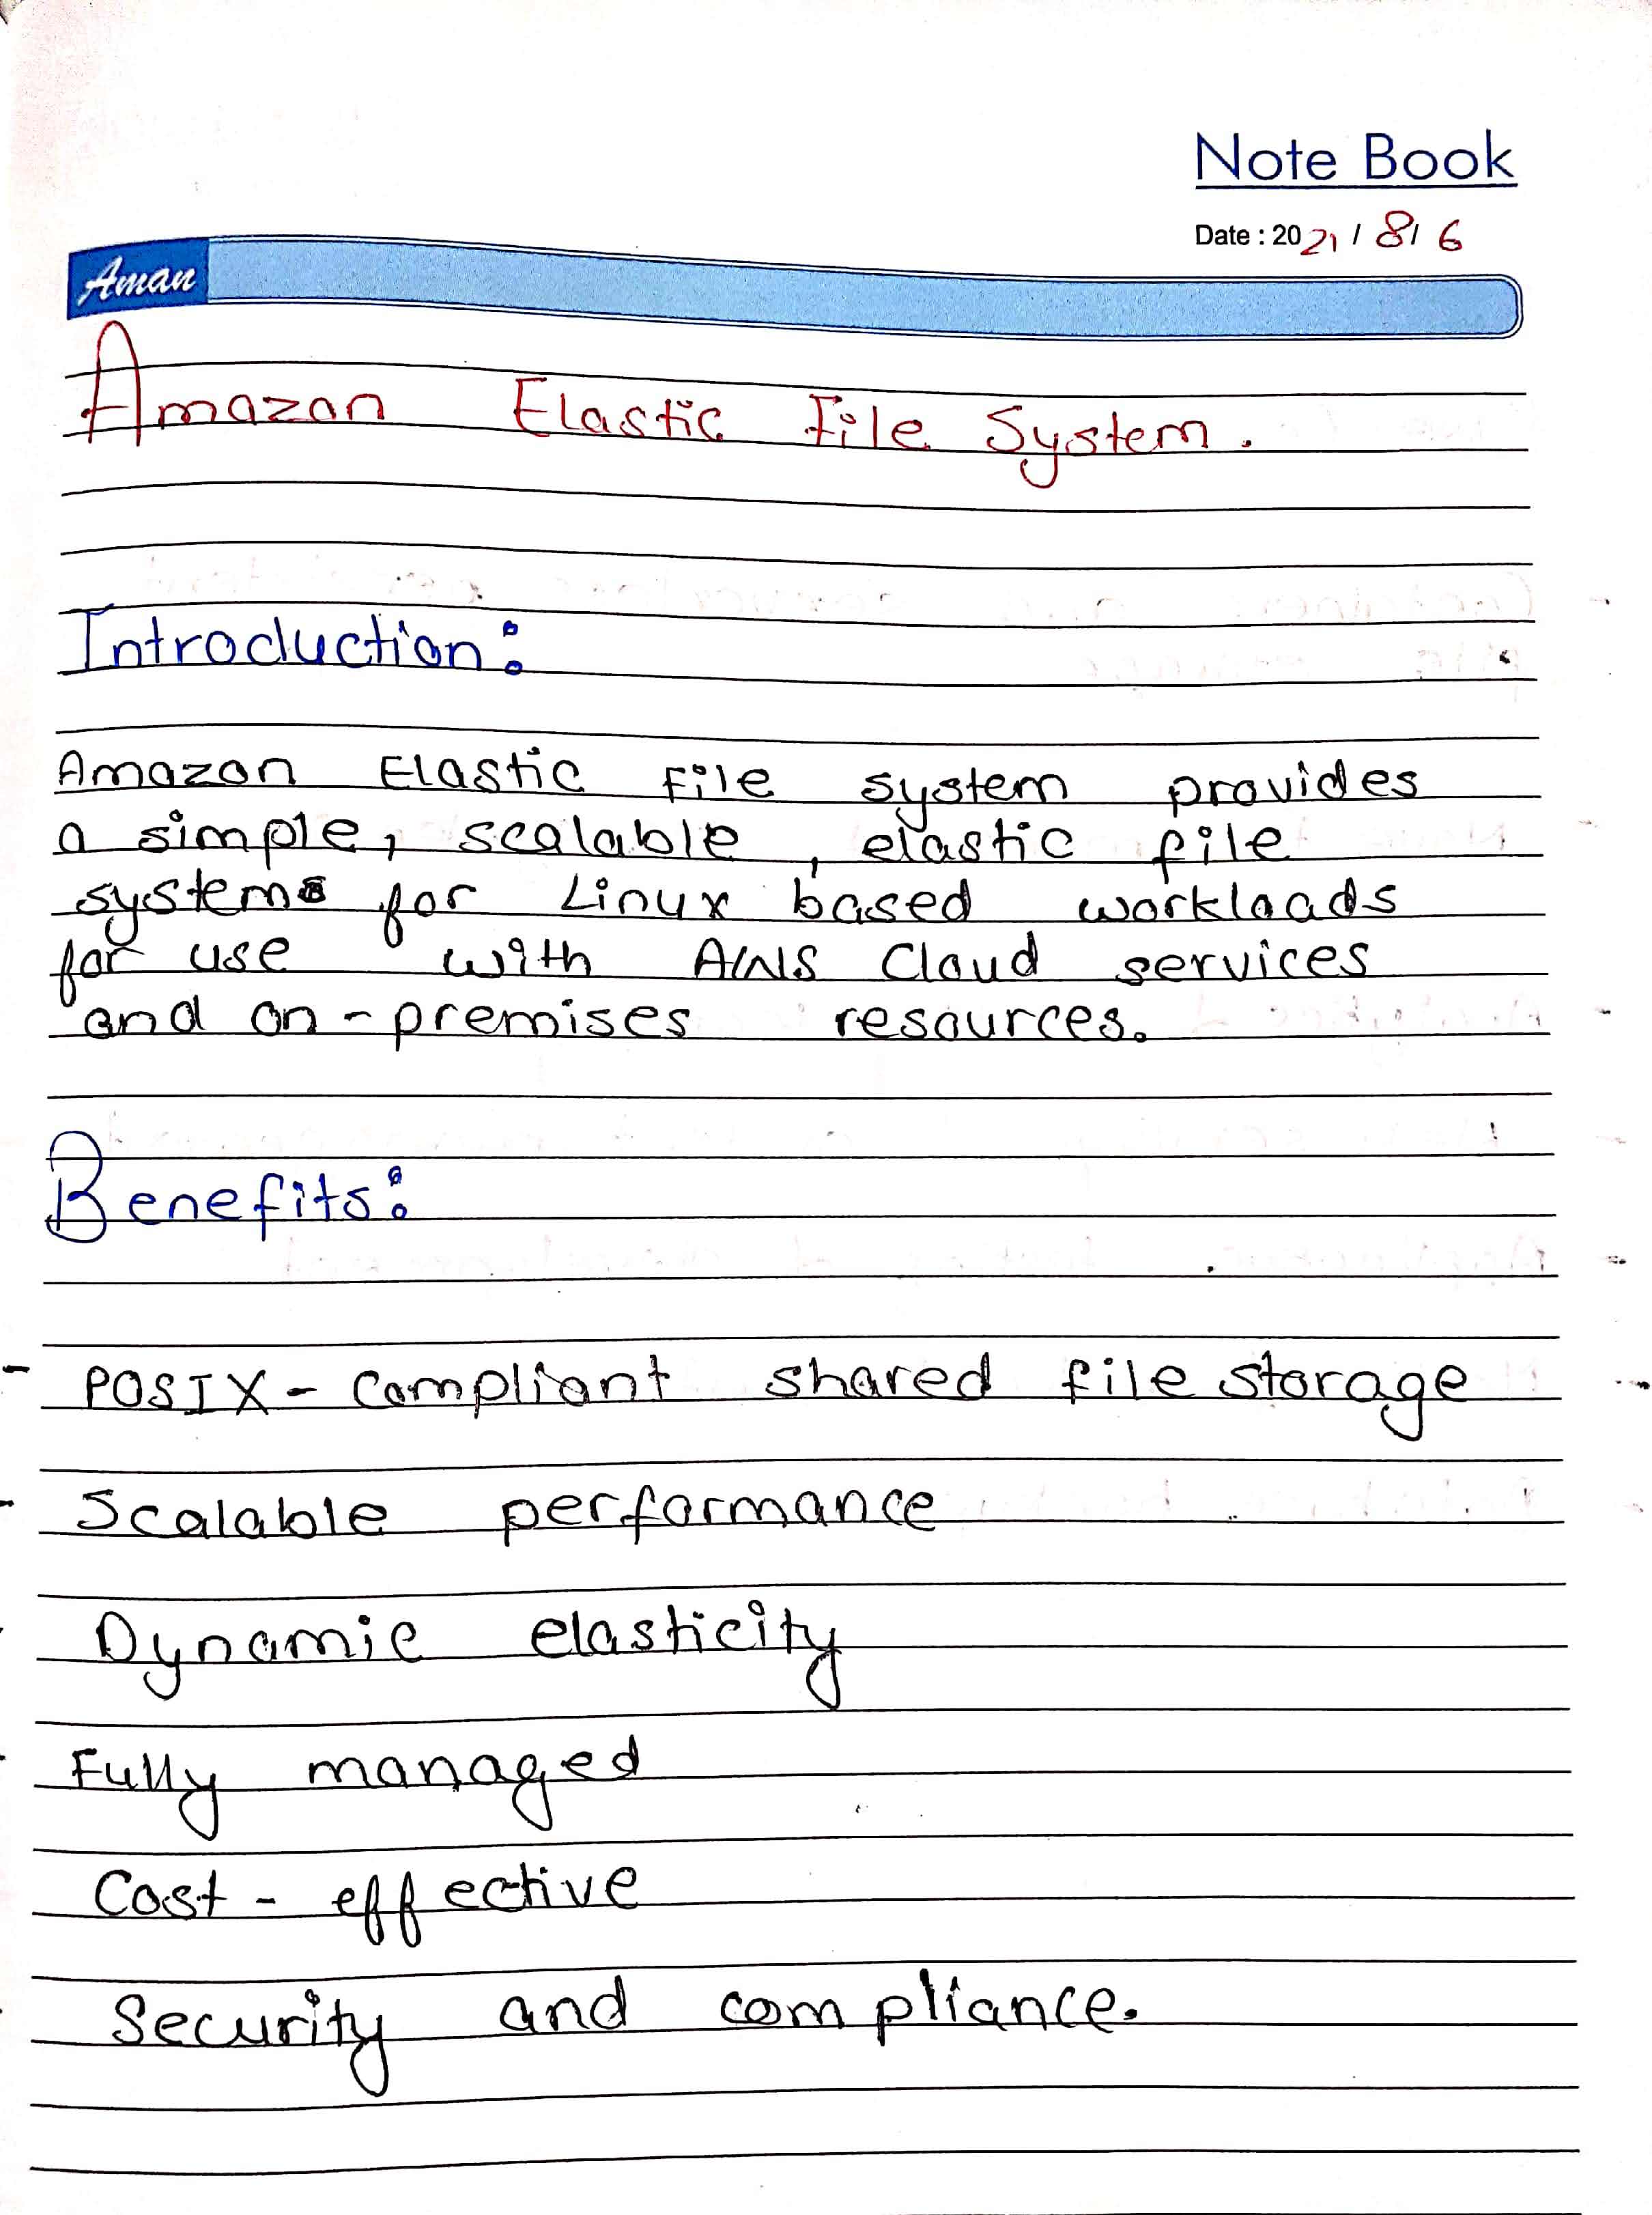 Note Book
Date : 2021 / 8 / 6
Aman
Amazon Elastic File System.
Introduction:
Amazon Elastic File system provides
a simple, scalable, elastic file
systems for Linux based workloads
for use with AWS Cloud services
and on-premises resources.
Benefits:
- POSIX - Compliant shared file storage
- Scalable performance
- Dynamic elasticity
- Fully managed
Cost - effective
- Security and compliance.